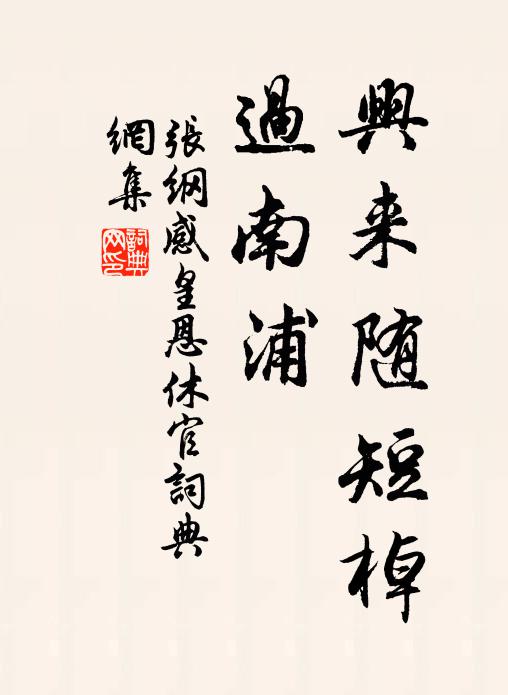 興来随短棹
過南浦
張綱感皇恩休官詞典
網集
詞典
网印